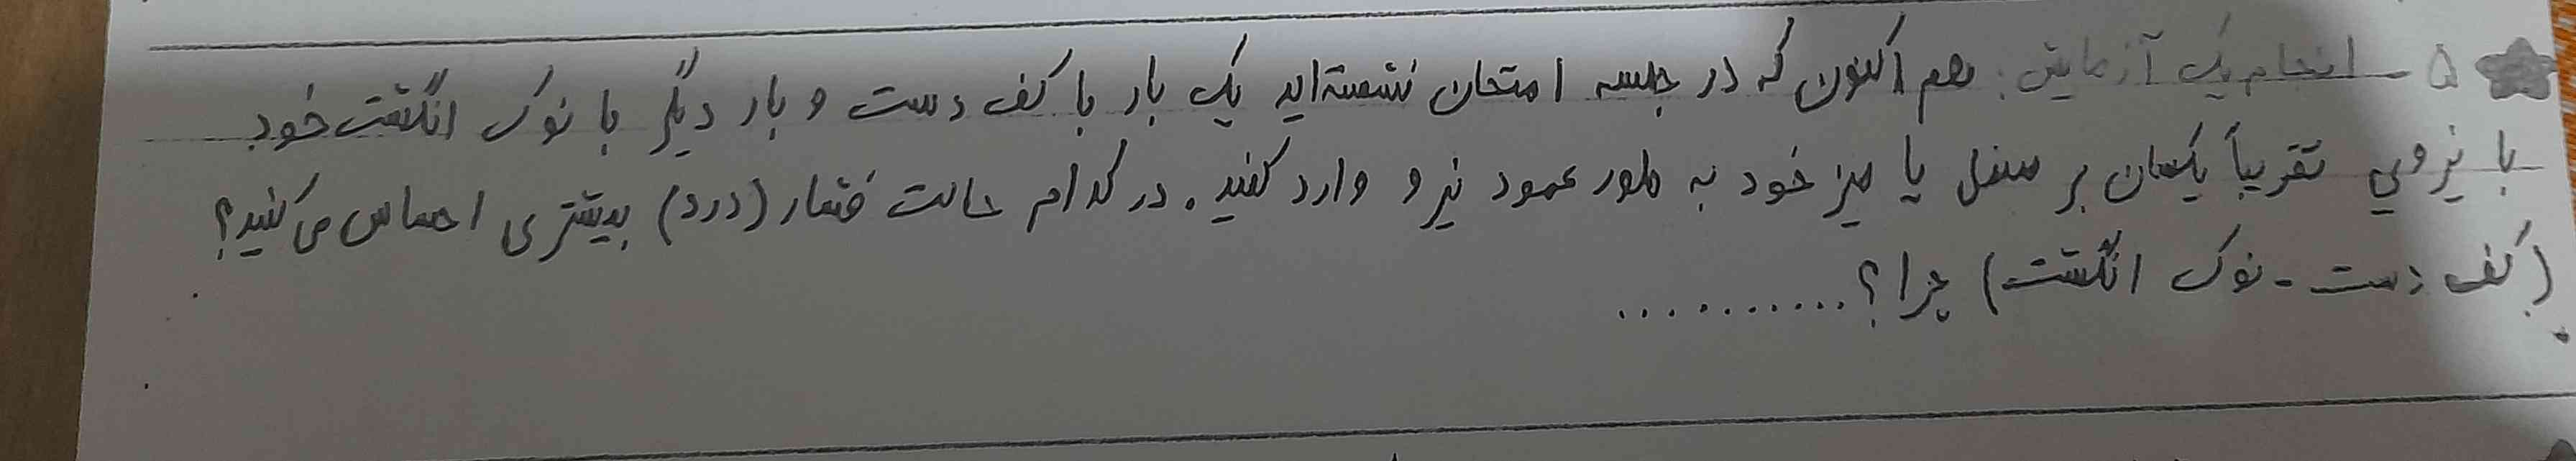 ۵- انجام یک آزمایش: هم اکنون که در جلسه امتحان نشسته‌اید یک بار با کف دست و بار دیگر با نوک انگشت خود
با نیرویی تقریباً یکسان بر صندلی یا میز خود به طور عمود نیرو وارد کنید. در کدام حالت فشار (درد) بیشتری احساس می‌کنید؟
(کف دست - نوک انگشت) چرا؟ ...........